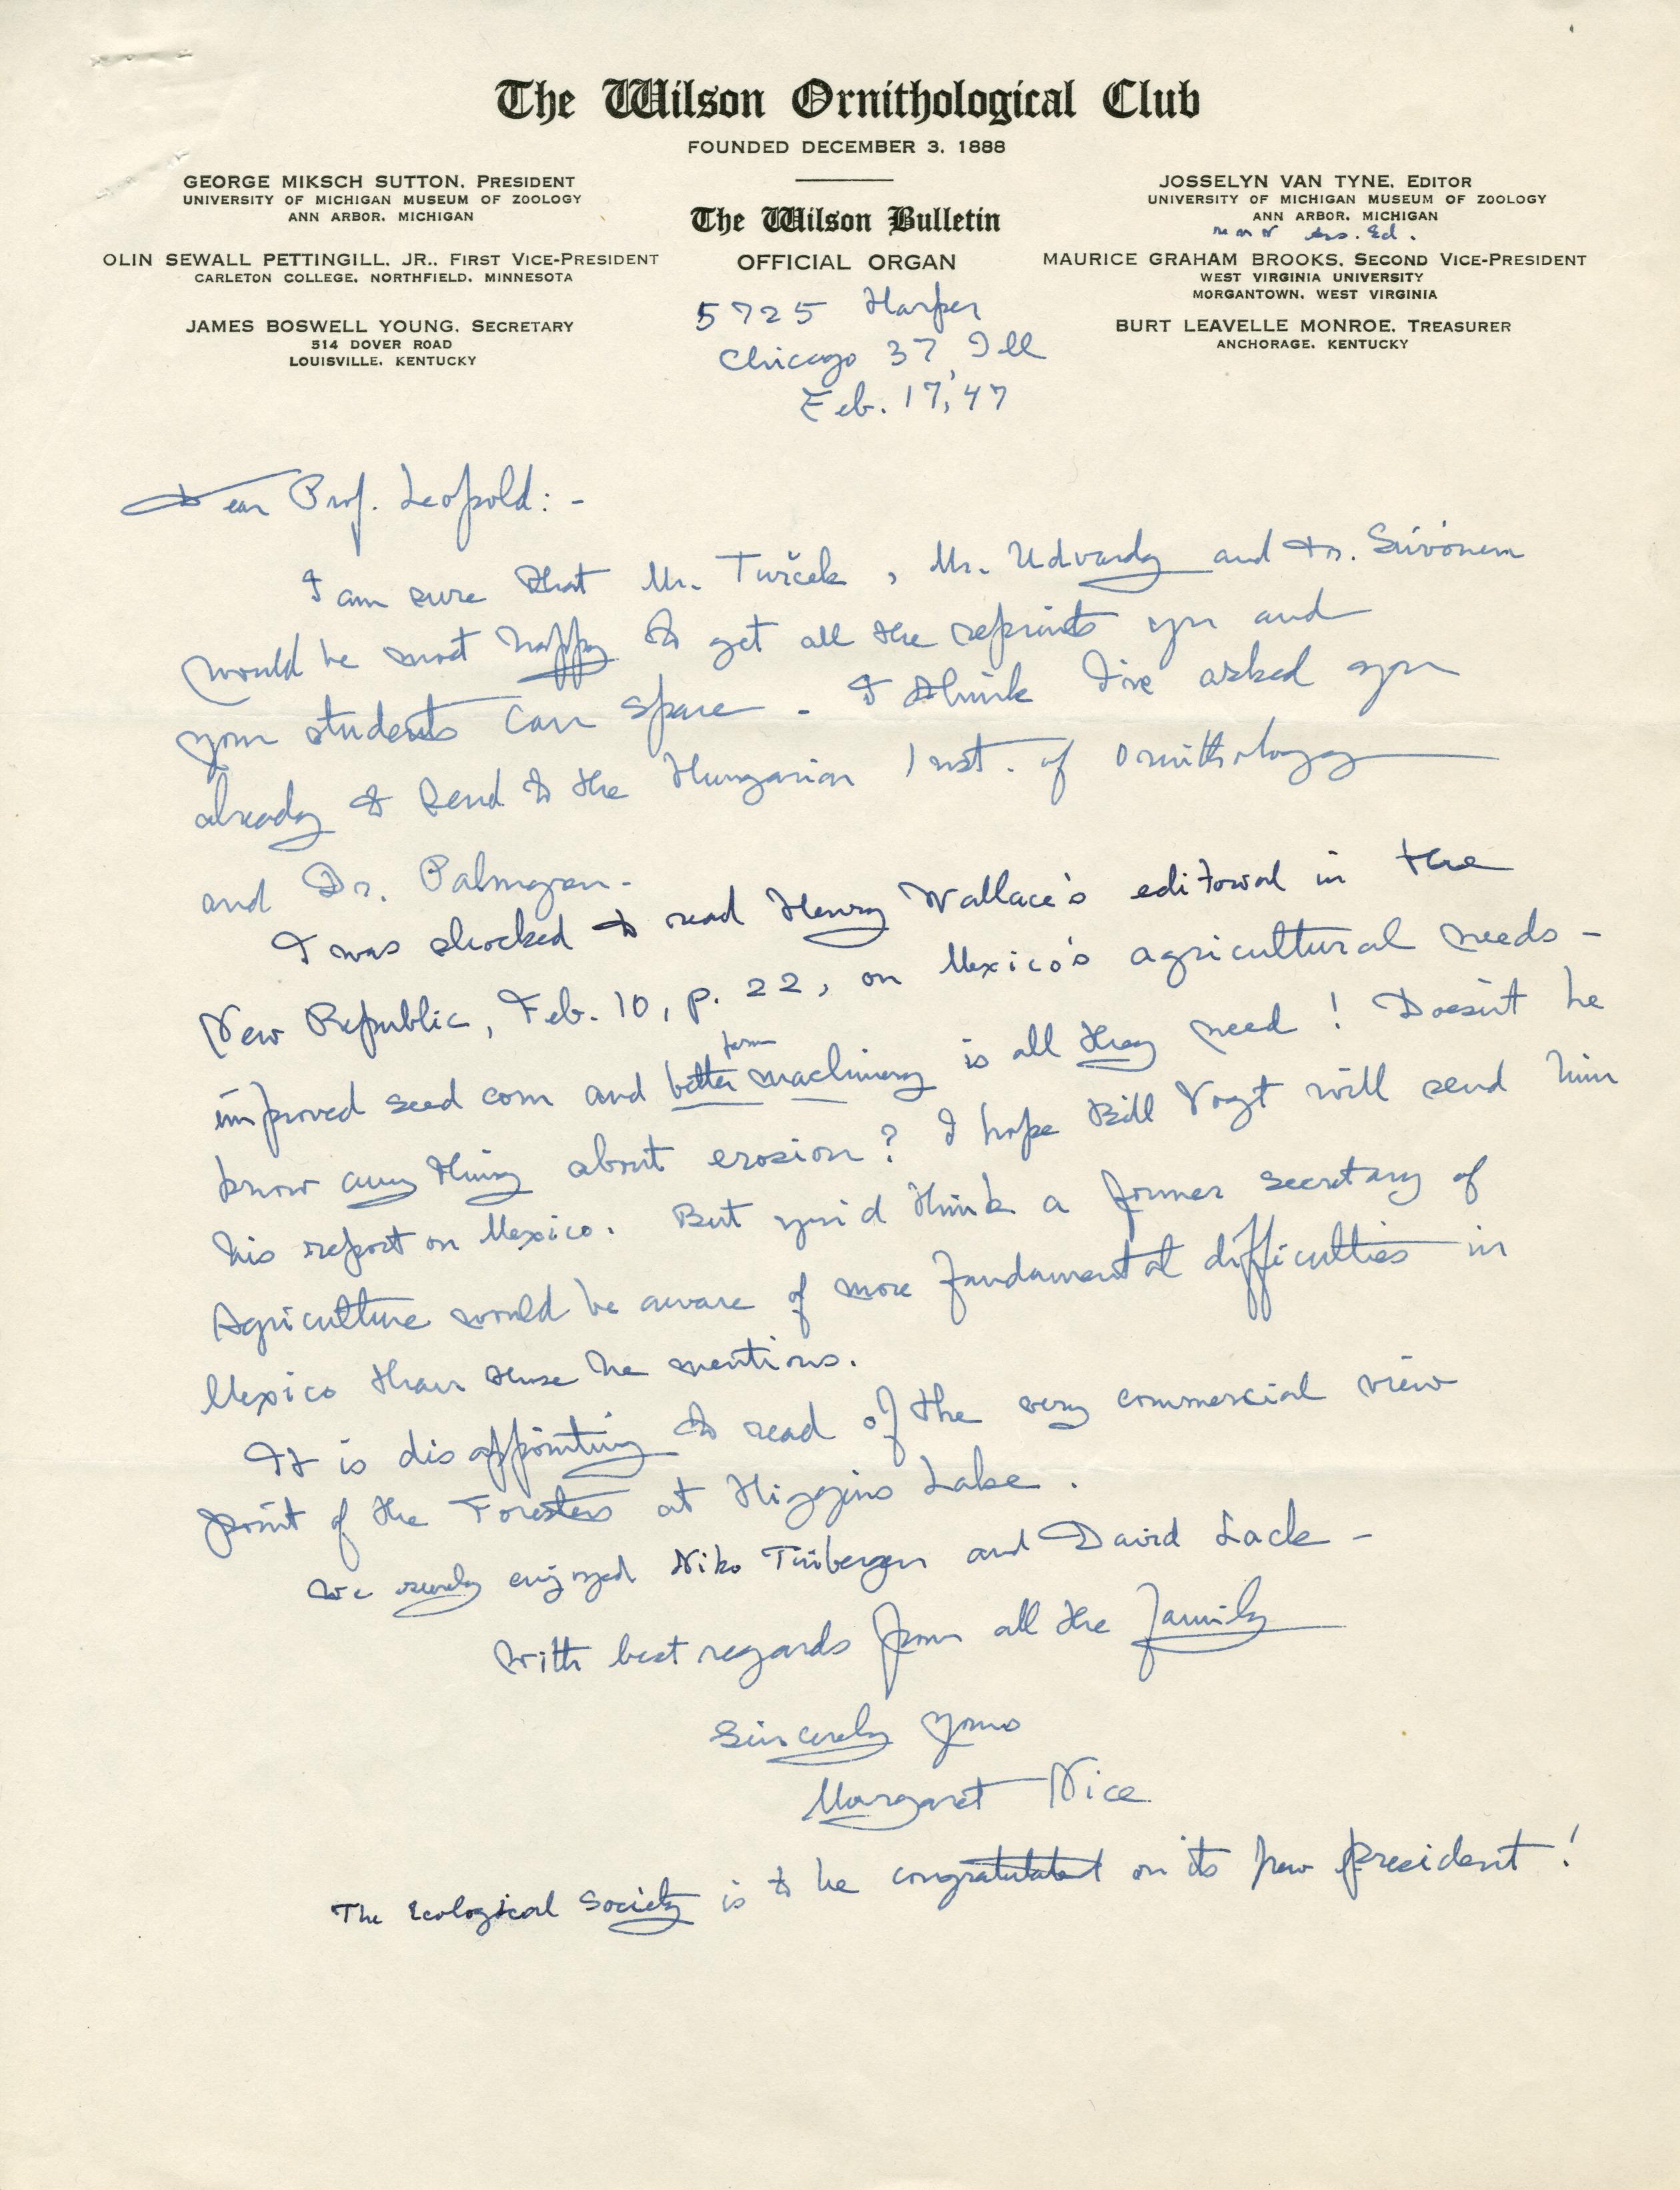 The Wilson Ornithological Club
FOUNDED DECEMBER 3, 1888
GEORGE MIKSCH SUTTON, PRESIDENT
UNIVERSITY OF MICHIGAN MUSEUM OF ZOOLOGY
ANN ARBOR, MICHIGAN
OLIN SEWALL PETTINGILL, JR., FIRST VICE-PRESIDENT
CARLETON COLLEGE, NORTHFIELD, MINNESOTA
JAMES BOSWELL YOUNG, SECRETARY
514 DOVER ROAD
LOUISVILLE, KENTUCKY
The Wilson Bulletin
OFFICIAL ORGAN
JOSSELYN VAN TYNE, EDITOR
UNIVERSITY OF MICHIGAN MUSEUM OF ZOOLOGY
ANN ARBOR, MICHIGAN
M M N Ass. Ed.
MAURICE GRAHAM BROOKS, SECOND VICE-PRESIDENT
WEST VIRGINIA UNIVERSITY
MORGANTOWN, WEST VIRGINIA
BURT LEAVELLE MONROE, TREASURER
ANCHORAGE, KENTUCKY
5725 Harper
Chicago 37 Ill
Feb. 17, '47
Dear Prof. Leopold: -
I am sure that Mr. Turček, Mr. Udvardy and Dr. Siivonen
would be most happy to get all the reprints you and
your students can spare - I think I've asked you
already to send to the Hungarian Inst. of Ornithology
and Dr. Palmgren -
I was shocked to read Henry Wallace's editorial in the
New Republic, Feb. 10, p. 22, on Mexico's agricultural needs -
improved seed corn and better farm machinery is all they need! Doesn't he
know any thing about erosion? I hope Bill Vogt will send him
his report on Mexico. But you'd think a former secretary of
Agriculture would be aware of more fundamental difficulties in
Mexico than those he mentions.
It is disappointing to read of the very commercial view
point of the Foresters at Higgins Lake.
We surely enjoyed Niko Tinbergen and David Lack -
With best regards from all the family
Sincerely yours
Margaret Nice
The Ecological Society is to be congratulated on its new president!